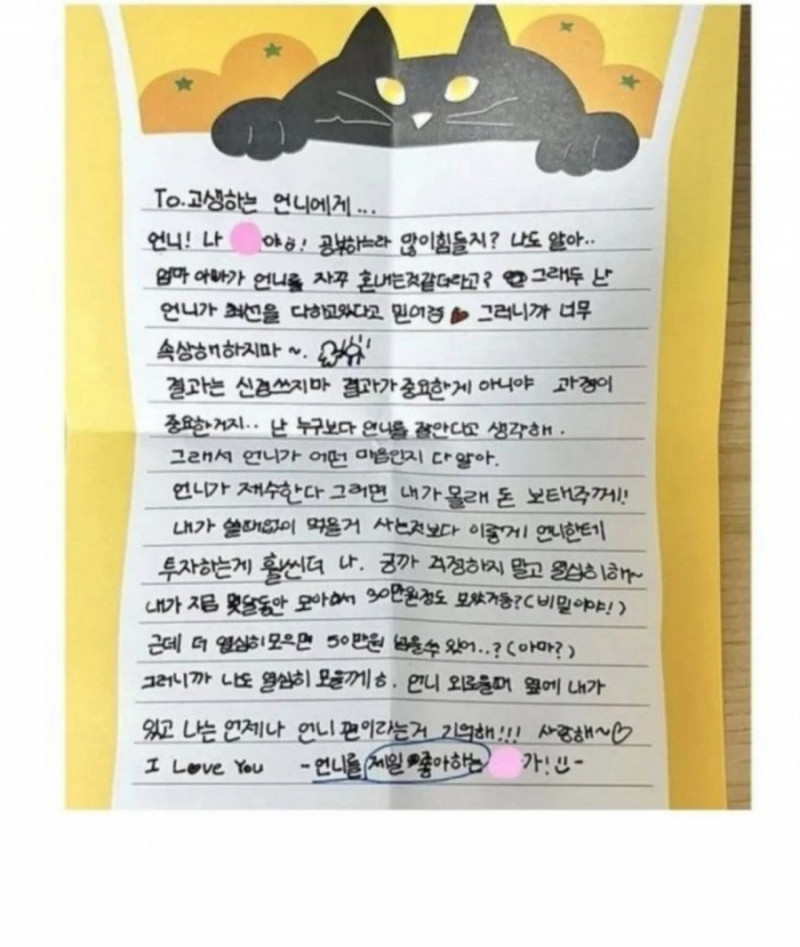 To.고생하는 언니에게...
언니! 나 야ㅎ! 공부하느라 많이힘들지? 나도 알아..
엄마 아빠가 언니를 자꾸 혼내는것같더라고? 그래두 난
언니가 최선을 다하고있다고 믿어경 그러니까 너무
속상해하지마~.
결과는 신경쓰지마 결과가 중요한게 아니야 과정이
중요한거지.. 난 누구보다 언니를 잘안다고 생각해.
그래서 언니가 어떤 마음인지 다알아.
언니가 재수한다 그러면 내가 몰래 돈 보태주께!!
내가 쓸때없이 먹을거 사는것보다 이렇게 언니한테
투자하는게 훨씬더 나. 긍까 걱정하지 말고 열심히해~
내가 지금 몇달동안 모아서 30만원정도 모았거등?(비밀이야!)
근데 더 열심히모으면 50만원 넘을수 있어..?(아마?)
그러니까 나도 열심히 모을께ㅎ. 언니 외로울때 옆에 내가
있고 나는 언제나 언니 편이라는거 기억해!!! 사랑해~♡
I Love You -언니를 제일 좋아하는 가!!-